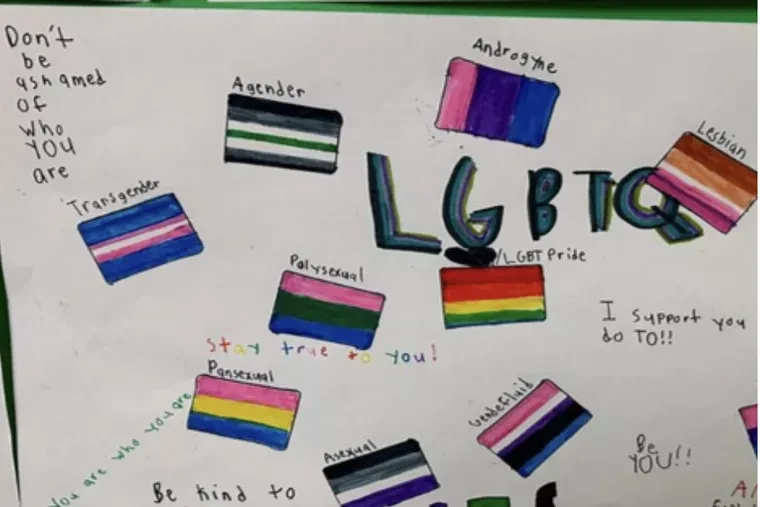 Don't
be
ashamed
of
who
YOU
are
Agender
Androgyne
Lesbian
LGBTQ
Transgender
/LGBT Pride
Polysexual
I support you
do TO!!
stay true to you!
Pansexual
You are who you are
Genderfluid
Asexual
Be
YOU!!
Be kind to